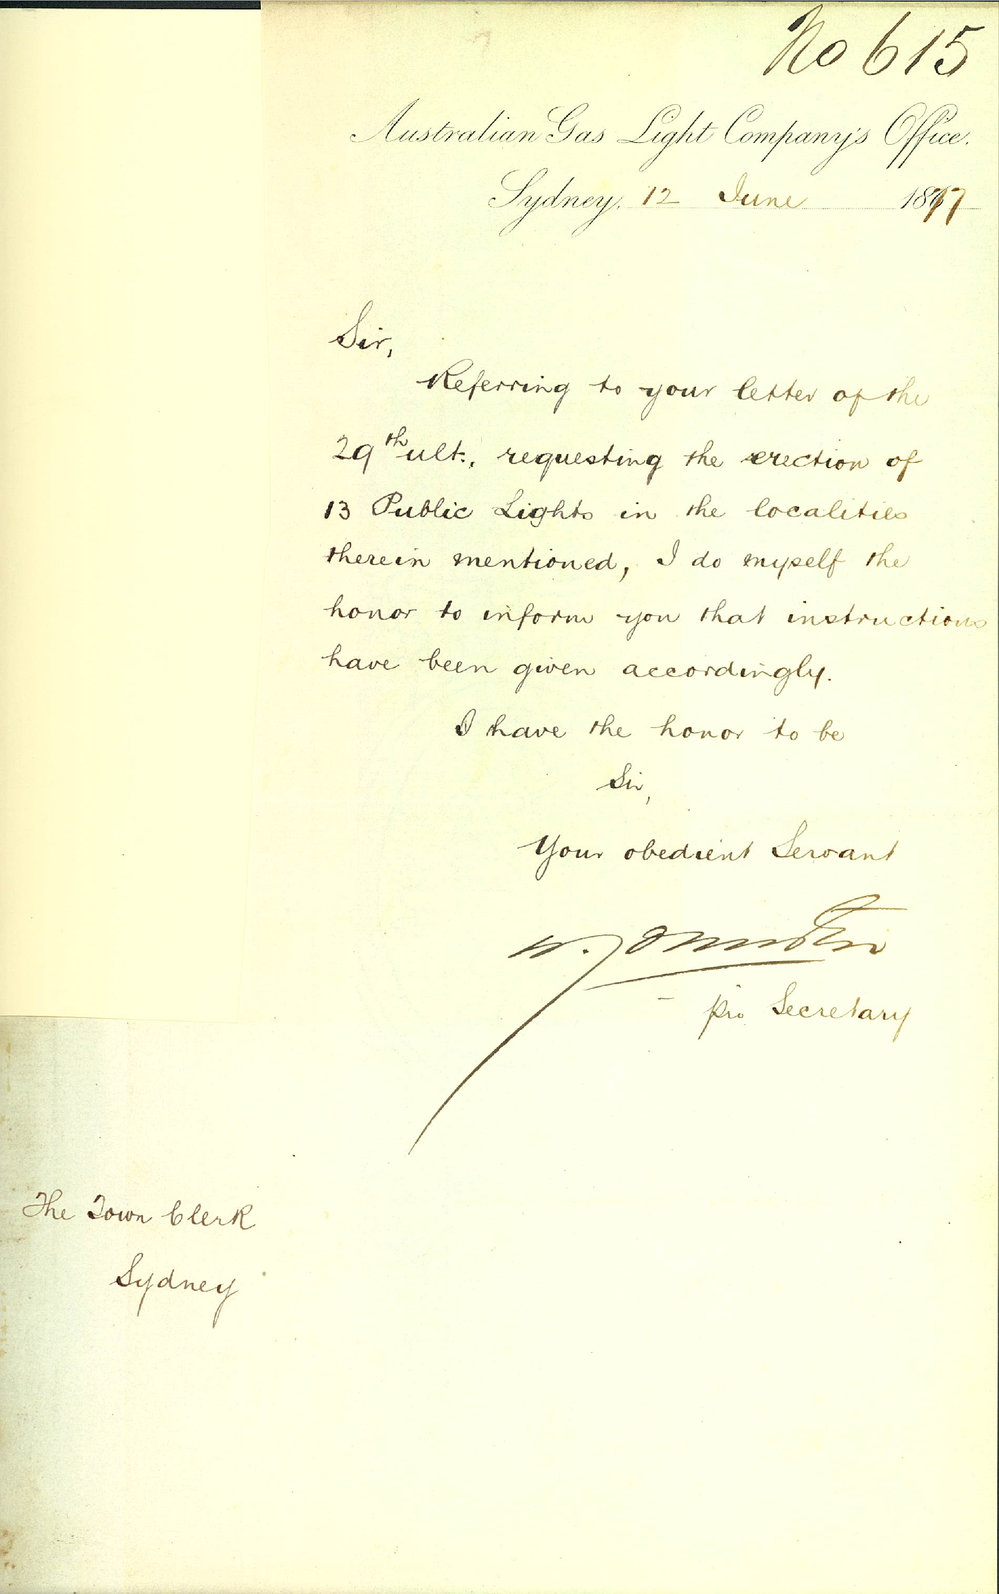 No 615
Australian Gas Light Company's Office.
Sydney. 12 June 1877
Sir,
Referring to your letter of the
29th ult., requesting the erection of
13 Public Lights in the localities
therein mentioned, I do myself the
honor to inform you that instructions
have been given accordingly.
I have the honor to be
Sir,
Your obedient Servant
W. Johnston
pro Secretary
The Town Clerk
Sydney